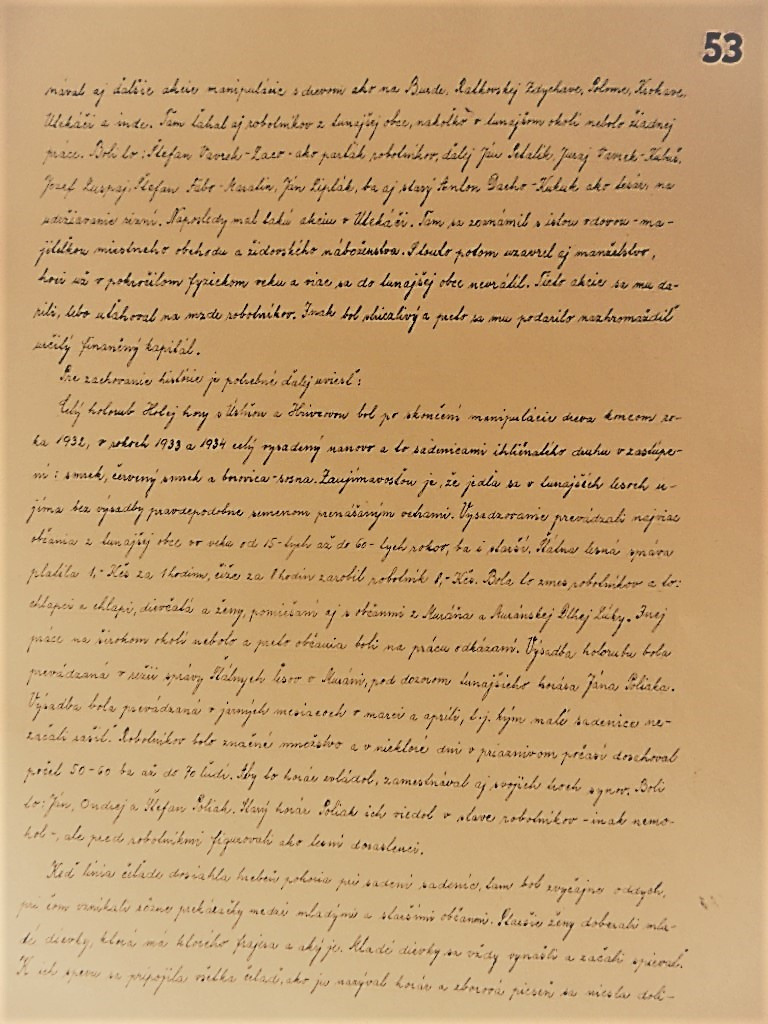 53
nával aj ďalšie akcie manipulácie s drevom ako na Burde, Ratkovskej Zdychave, Polome, Krokave,
Utekáči a inde. Tam ťahal aj robotníkov z tunajšej obce, nakoľko v tunajšom okolí nebolo žiadnej
práce. Boli to: Štefan Vavrek-Zaco-ako parťák robotníkov, ďalej Ján Petalík, Juraj Vavrek-Kubuš,
Jozef Luspaj, Štefan Fabo-Maralin, Ján Lipták, ba aj starý Anton Dacho-Kukuk ako tesár, na
udržiavanie rizní. Naposledy mal takú akciu v Utekáči. Tam sa zoznámil s istou vdovou-ma-
jiteľkou miestneho obchodu a židovského náboženstva. S touto potom uzavrel aj manželstvo,
hoci už v pokročilom fyzickom veku a viac sa do tunajšej obce nevrátil. Tieto akcie sa mu da-
rili, lebo uťahoval na mzde robotníkov. Inak bol vľúdny a preto sa mu podarilo nazhromaždiť
určitý finančný kapitál.
Pre zachovanie histórie je potrebné ďalej uviesť:
Celý holorub Holej hory s Úslňou a Hrúzovou bol po skončení manipulácie dreva koncom ro-
ka 1932, v rokoch 1933 a 1934 celý vysadený nanovo a to sadenicami ihličnatého druhu v zastúpe-
ní: smrek, červený smrek a borovica-sosna. Zaujímavosťou je, že jedľa sa v tunajších lesoch u-
jíma bez výsadby pravdepodobne semenom prenášaným vetrami. Vysadzovanie prevádzali najviac
občania z tunajšej obce vo veku od 15-tych až do 60-tych rokov, ba i starší. Štátna lesná správa
platila 1,- Kčs za 1 hodinu, čiže za 8 hodín zarobil robotník 8,- Kčs. Bola to zmes robotníkov a to:
chlapci a chlapi, dievčatá a ženy, pomiešaní aj s občanmi z Muráňa a Muránskej Dlhej Lúky. Inej
práce na širokom okolí nebolo a preto občania boli na prácu odkázaní. Výsadba holorubu bola
prevádzaná v režii správy Štátnych lesov v Muráni, pod dozorom tunajšieho horára Jána Poliaka.
Výsadba bola prevádzaná v jarných mesiacoch v marci a apríli, t.j. kým malé sadenice ne-
začali rašiť. Robotníkov bolo značné množstvo a v niektoré dni v priaznivom počasí dosahoval
počet 50-60 ba až do 70 ľudí. Aby to horár zvládol, zamestnával aj svojich troch synov. Boli
to: Ján, Ondrej a Štefan Poliak. Starý horár Poliak ich viedol v stave robotníkov -inak nemo-
hol-, ale pred robotníkmi figurovali ako lesní dorastenci.
Keď línia čeľade dosiahla hrebeň pohoria pri sadení sadeníc, tam bol zvyčajne oddych,
pri čom vznikali rôzne prekáračky medzi mladými a staršími občanmi. Staršie ženy doberali mla-
dé dievky, ktorá má ktorého frajera a aký je. Mladé dievky sa vždy vynašli a začali spievať.
K ich spevu sa pripojila všetka čeľaď, ako ju nazýval horár a zborová pieseň sa niesla doli-